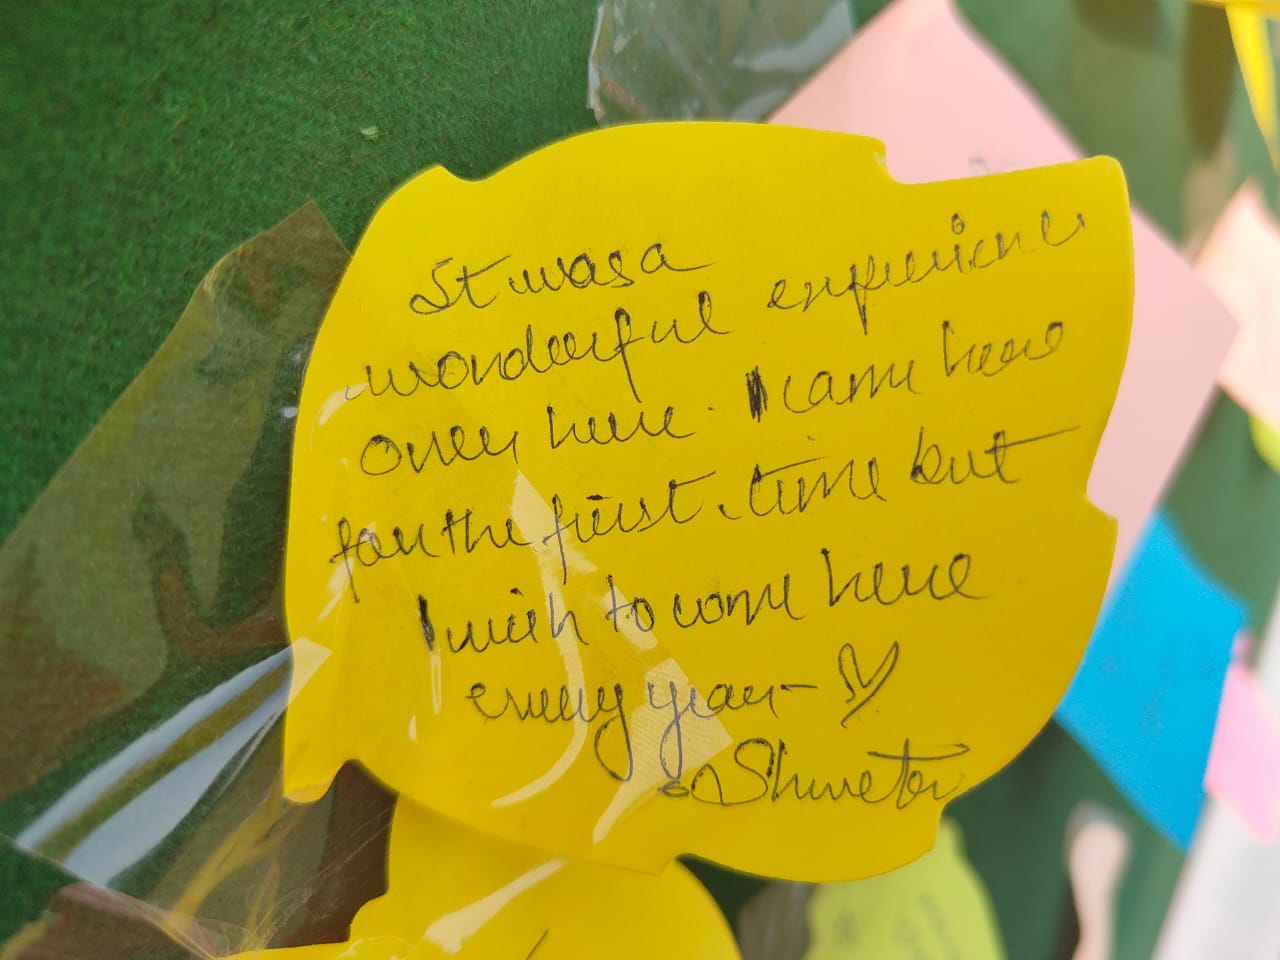 It was a
wonderful experience
over here. I came here
for the first time but
I wish to come here
every year-